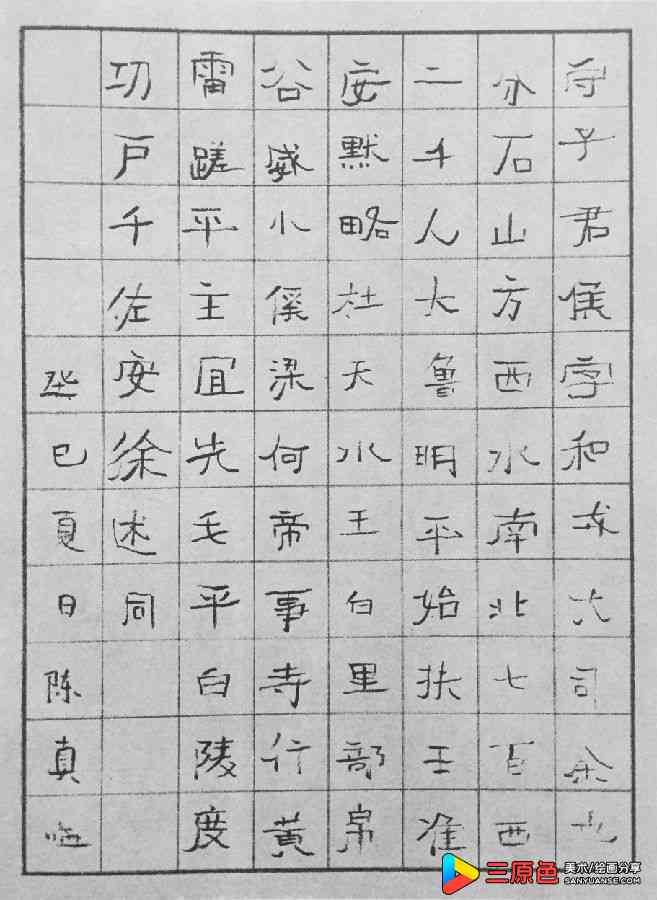 守子君侯字和戎六司余
分石山方西水南北七百西
二千人大鲁明平始扶王准
安默略杜天水王白里部帛
谷威小倸梁何帝事寺行黄
雷蹉平主宜先毛平白陵度
功户千佐安徐述同
巳夏日陈真临
三原色 美术/绘画分享
SANYUANSE.COM